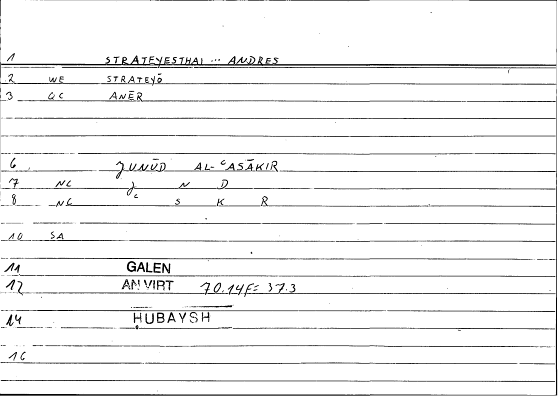 1 STRATEYESTHAI ... ANDRES
2 WE STRATEYŌ
3 QC ANĒR
6 ǦUNŪD AL-ʿASĀKIR
7 NC Ǧ N D
8 NC ʿ S K R
10 SA
11 GALEN
12 AN VIRT 70.14F = 37.3
14 ḤUBAYSH
16